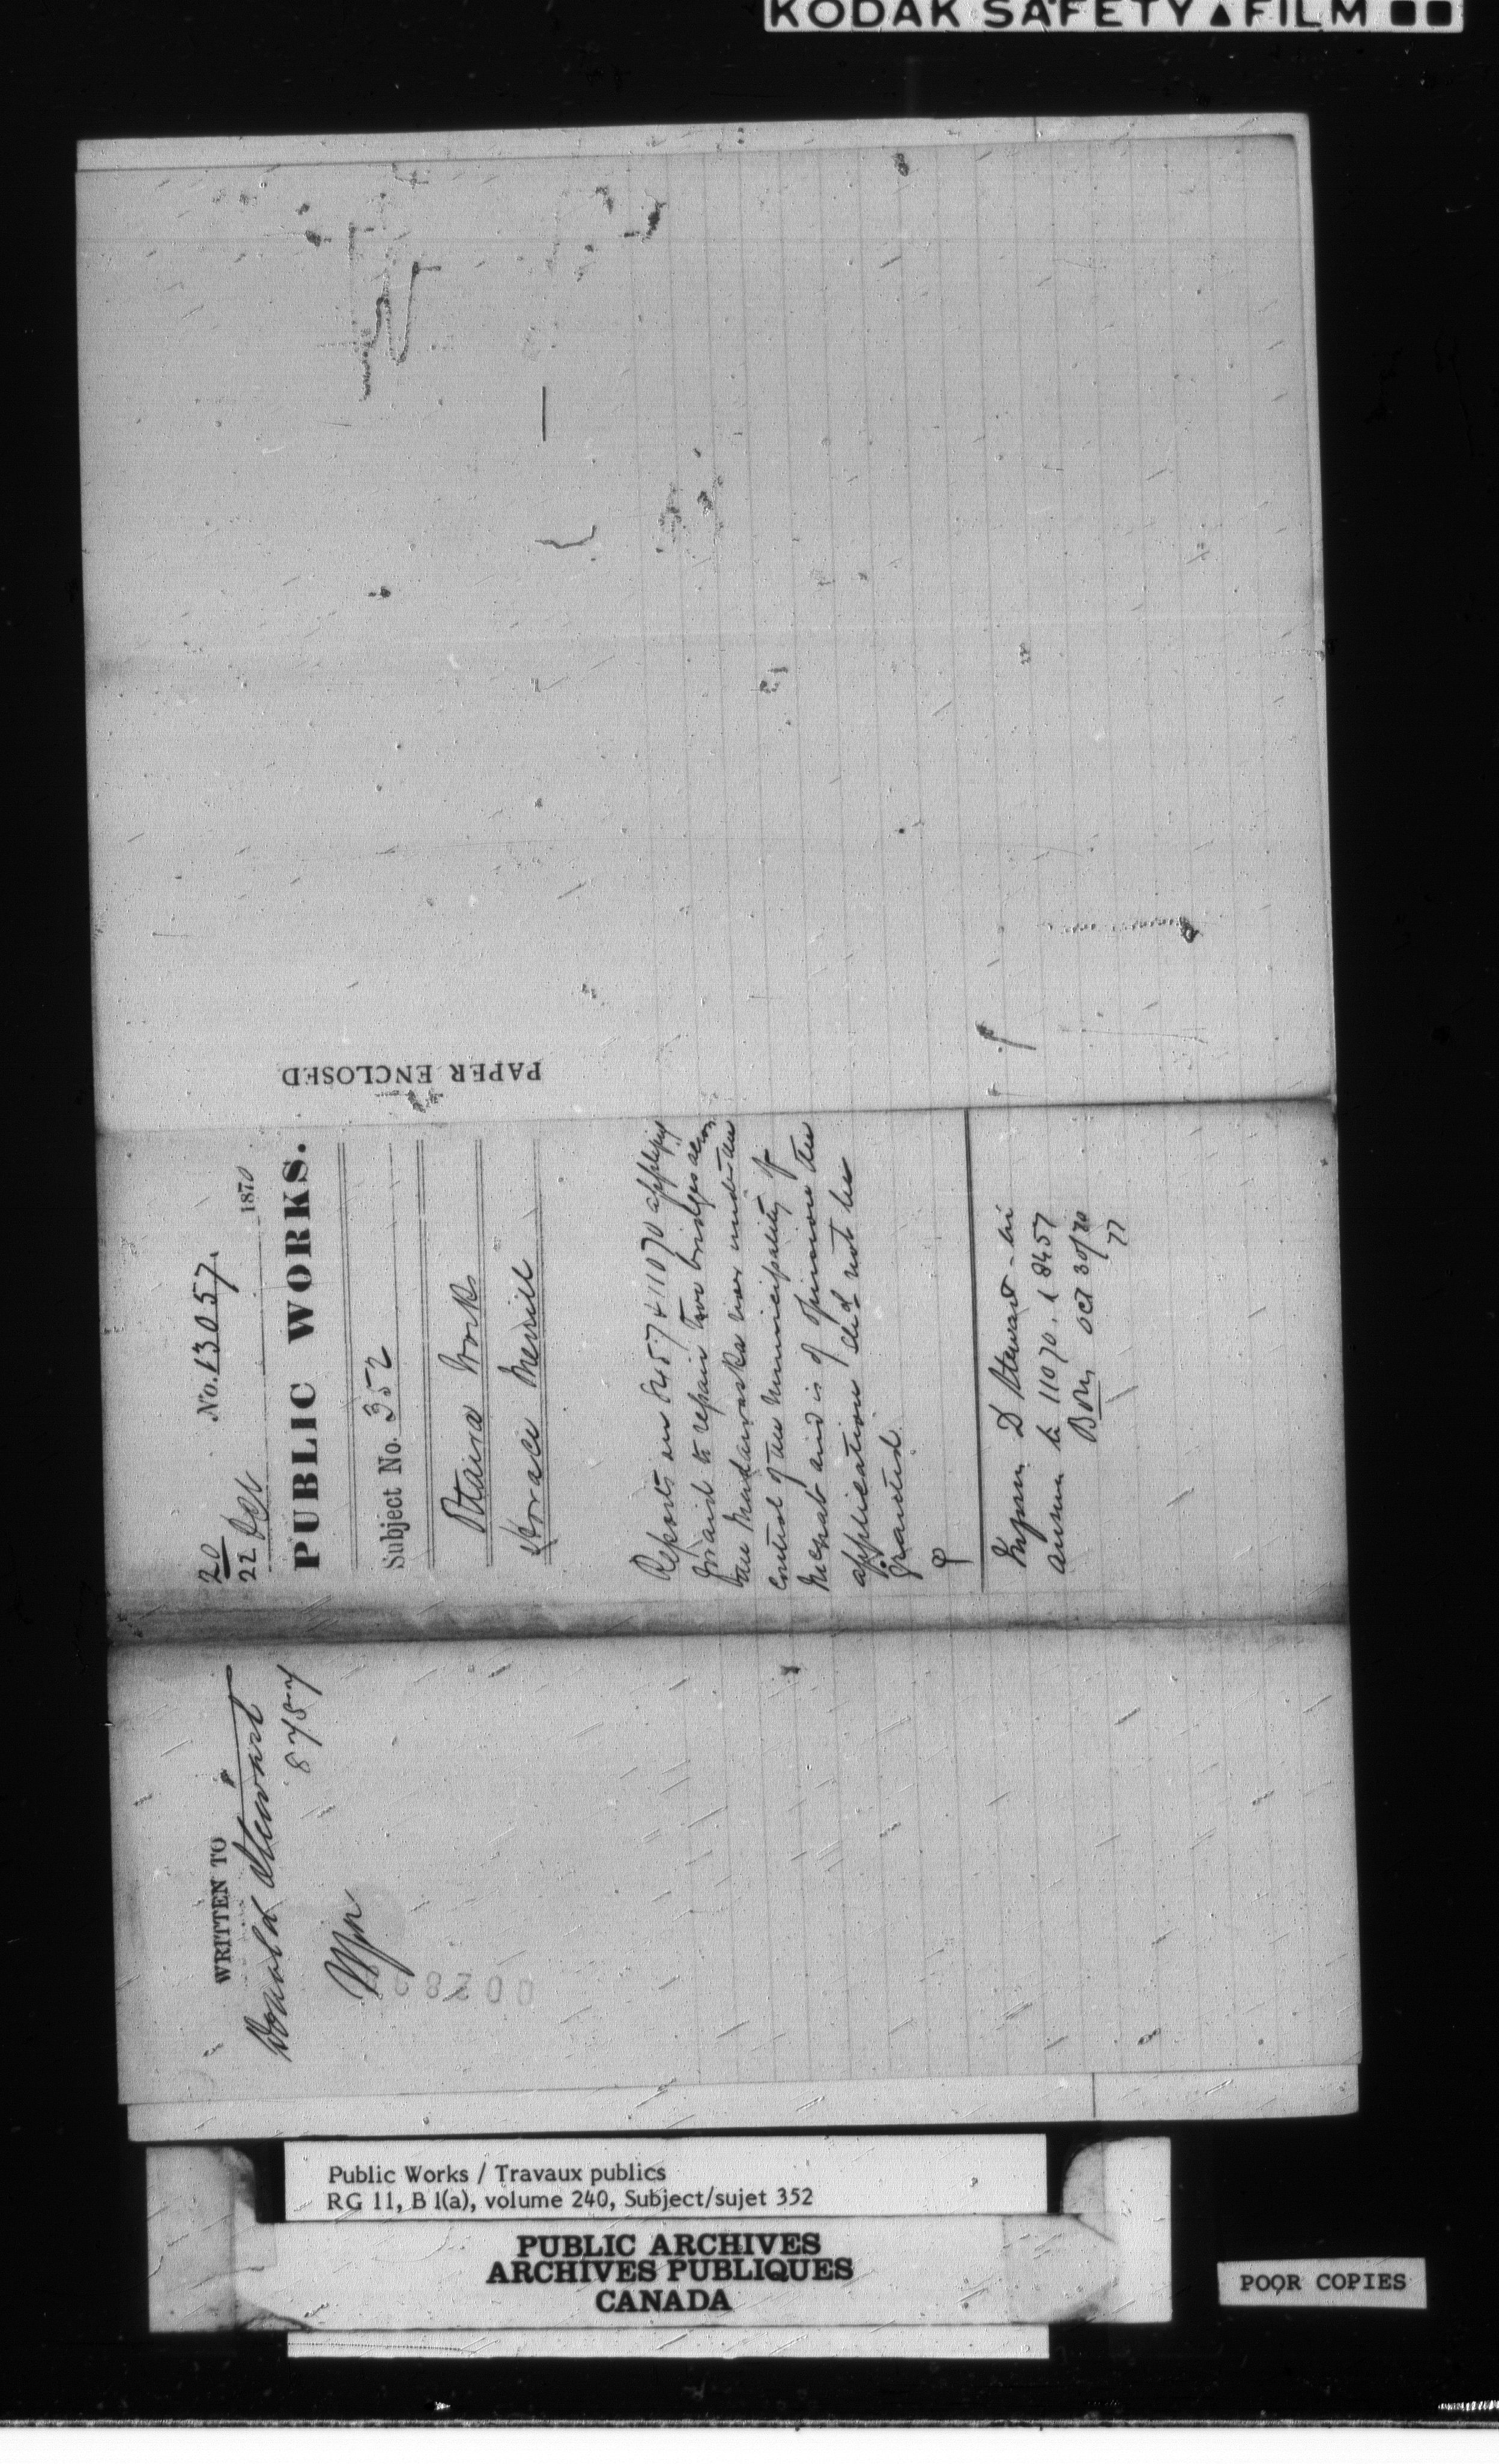 KODAK SAFETY ▲ FILM
PAPER ENCLOSED
No. 13057.
20
22 Oct 1870
PUBLIC WORKS.
Subject No. 352
Ottawa Works
Horace Merrill
Reports on 8457 & 11070 applying
for aid to repair two bridges across
the Madawaska river under the
control of the Municipality of
McNab and is of opinion the
application shd not be
granted.
D Stewart - in
answer to 11070. & 8457
Oct 30/70
77
WRITTEN TO
Donald Stewart
8757
Public Works / Travaux publics
RG 11, B 1(a), volume 240, Subject/sujet 352
PUBLIC ARCHIVES
ARCHIVES PUBLIQUES
CANADA
POOR COPIES